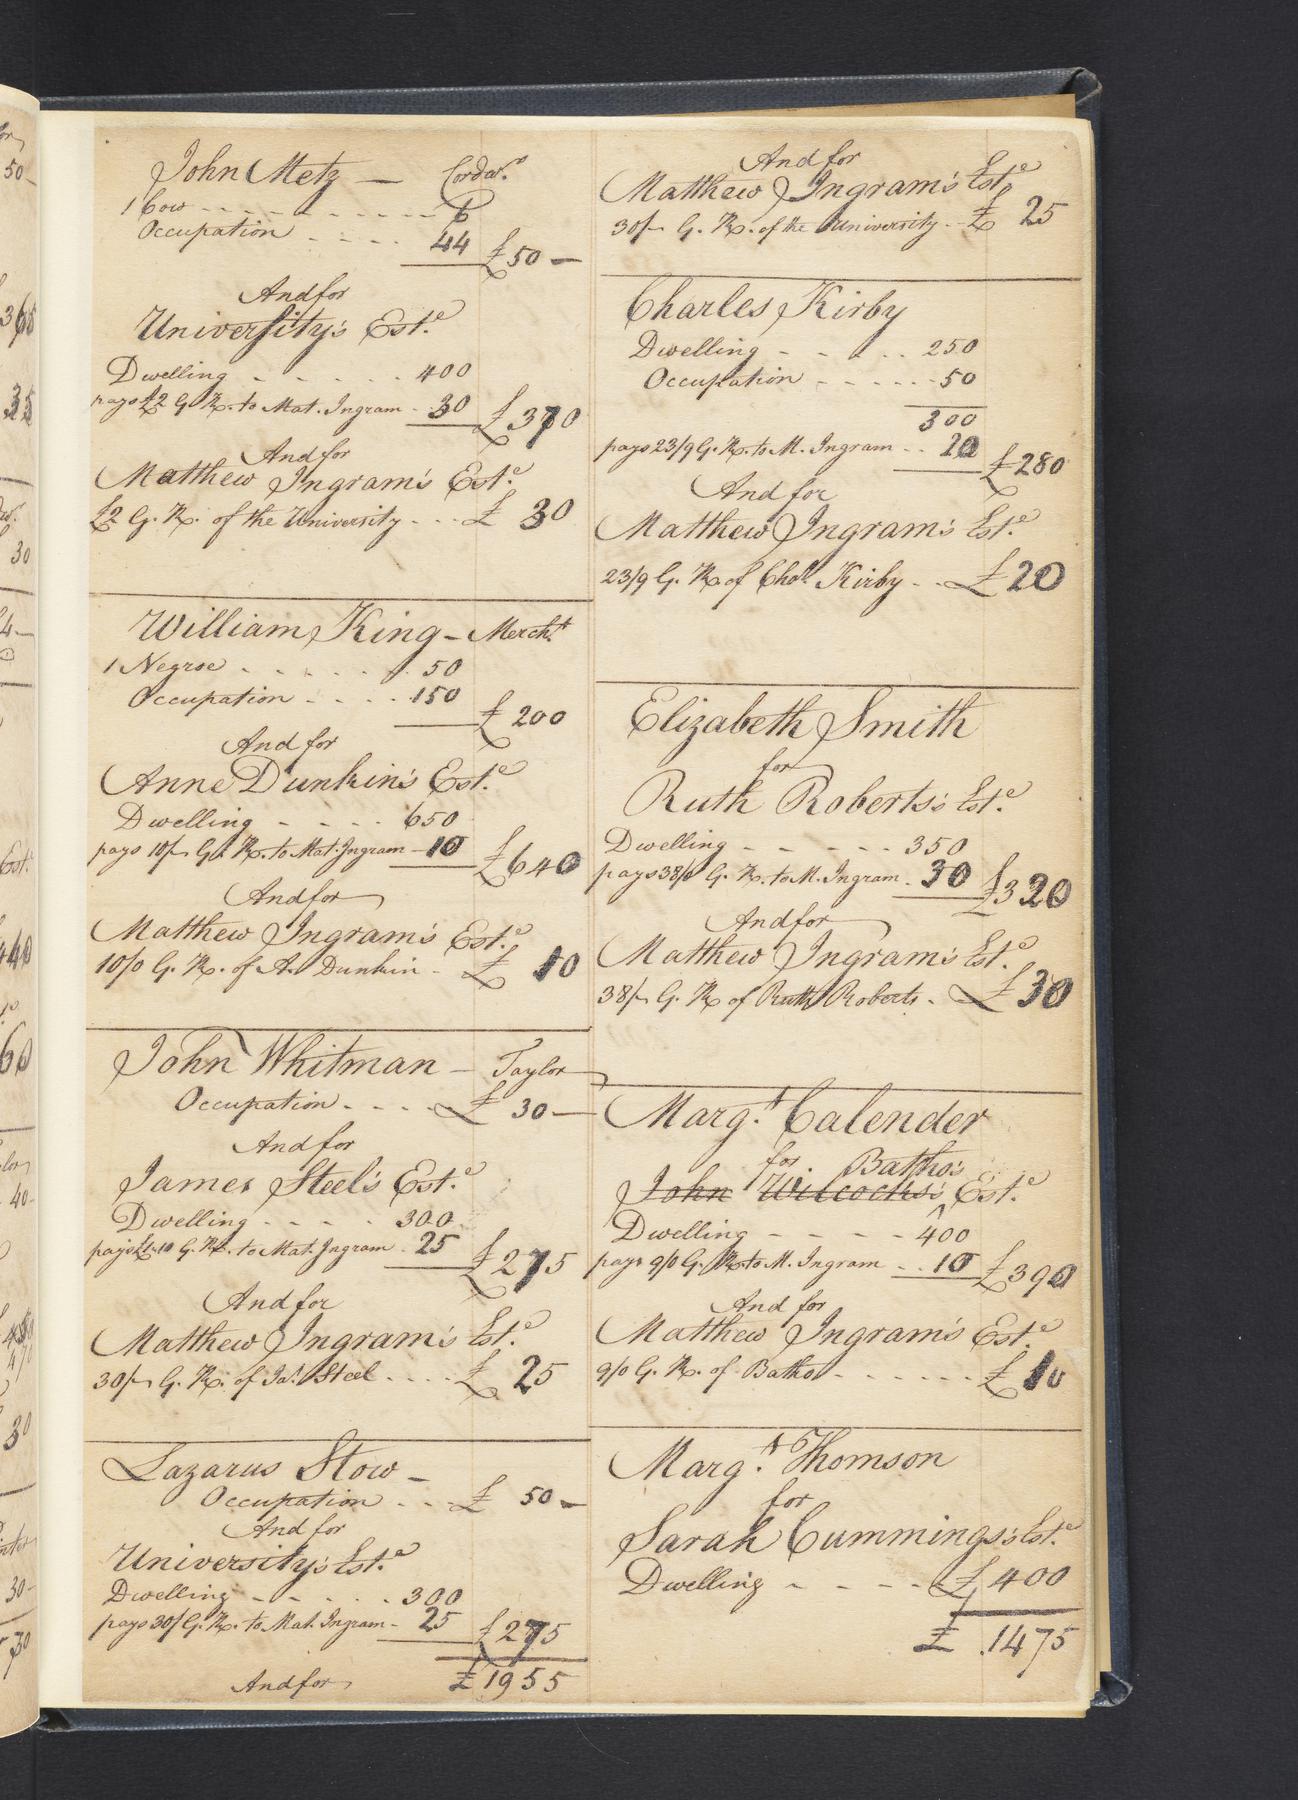 John Metz — Cordwr.
1 Cow - - - - - - - - - 6
Occupation - - - - 44 £50 —
And for
University's Est.e
Dwelling - - - - - - 400
pays £2 G. R. to Mat. Ingram - 30 £370
And for
Matthew Ingram's Est.e
£2 G. R. of the University - - - £ 30
William King — Mercht
1 Negroe - - - - - - 50
Occupation - - - - 150 £ 200
And for
Anne Dunkin's Est.e
Dwelling - - - - - 650
pays 10/- G. R. to Mat. Ingram - 10 £640
And for
Matthew Ingram's Est.e
10/0 G. R. of A. Dunkin - £ 10
John Whitman — Taylor
Occupation - - - - £ 30 —
And for
James Steel's Est.e
Dwelling - - - - - 300
pays £1.10 G. R. to Mat. Ingram - 25 £275
And for
Matthew Ingram's Est.e
30/- G. R. of Jas. Steel - - - - £ 25
Lazarus Stow —
Occupation - - - £ 50 —
And for
University's Est.e
Dwelling - - - - - 300
pays 30/ G. R. to Mat. Ingram - 25 £275
£1955
And for
And for
Matthew Ingram's Est.e
30/- G. R. of the University - - £ 25
Charles Kirby
Dwelling - - - - - 250
Occupation - - - - - 50
300
pays 23/9 G. R. to M. Ingram - - 20 £280
And for
Matthew Ingram's Est.e
23/9 G. R. of Chas. Kirby - - £20
Elizabeth Smith
for
Ruth Roberts's Est.e
Dwelling - - - - - 350
pays 38/0 G. R. to M. Ingram - 30 £320
And for
Matthew Ingram's Est.e
38/- G. R. of Ruth Roberts - £30
Marg.t Calender
for Batho's
John Wilcocks's Est.e
Dwelling - - - - - 400
pays 9/0 G. R. to M. Ingram - - 10 £390
And for
Matthew Ingram's Est.e
9/0 G. R. of Batho - - - - - - £ 10
Marg.t Thomson
for
Sarah Cummings's Est.e
Dwelling - - - - - £400
£ 1475